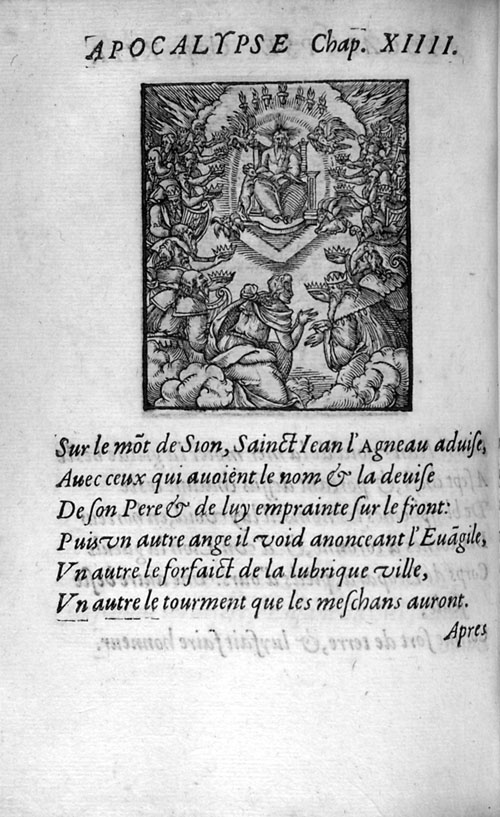 APOCALYPSE Chap. XIIII.
Sur le mõt de Sion, Sainct Iean l'Agneau aduise,
Auec ceux qui auoiẽt le nom & la deuise
De son Pere & de luy emprainte sur le front:
Puis vn autre ange il void anonceant l'Euãgile,
Vn autre le forfaict de la lubrique ville,
Vn autre le tourment que les meschans auront.
Apres